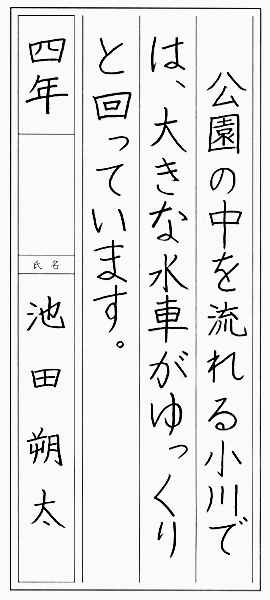 公園の中を流れる小川で
は、大きな水車がゆっくり
と回っています。
四年
氏名
池田朔太